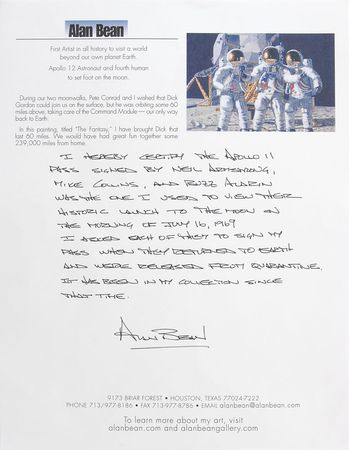 Alan Bean
First Artist in all history to visit a world
beyond our own planet Earth.
Apollo 12 Astronaut and fourth human
to set foot on the moon.
During our two moonwalks, Pete Conrad and I wished that Dick
Gordon could join us on the surface, but he was orbiting some 60
miles above, taking care of the Command Module — our only way
back to Earth.
In this painting, titled "The Fantasy," I have brought Dick that
last 60 miles. We would have had great fun together some
239,000 miles from home.
I HEREBY CERTIFY THE APOLLO 11
PASS SIGNED BY NEIL ARMSTRONG,
MIKE COLLINS, AND BUZZ ALDRIN
WAS THE ONE I USED TO VIEW THEIR
HISTORIC LAUNCH TO THE MOON ON
THE MORNING OF JULY 16, 1969
I ASKED EACH OF THEY TO SIGN MY
PASS WHEN THEY RETURNED TO EARTH
AND WERE RELEASED FROM QUARANTINE.
IT HAS BEEN IN MY COLLECTION SINCE
THAT TIME.
ALAN BEAN
9173 BRIAR FOREST • HOUSTON, TEXAS 77024-7222
PHONE 713/977-8186 • FAX 713-977-8786 • EMAIL alanbean@alanbean.com
To learn more about my art, visit
alanbean.com and alanbeangallery.com